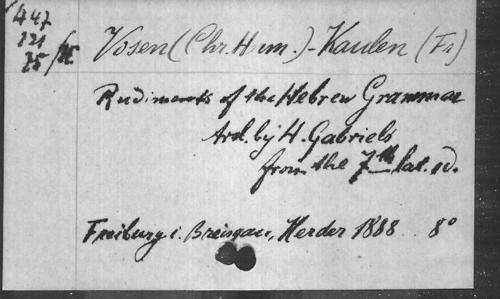 447
121
75/K
Vosen (Chr. Herm.) - Kaulen (Fr)
Rudiments of the Hebrew Grammar
trd. by H. Gabriels
from the 7th lat. ed.
Freiburg i. Breisgau, Herder 1888.. 8°